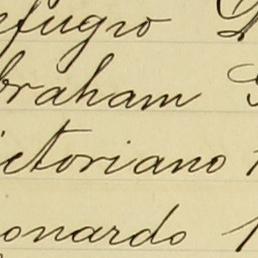 efugio
braham
ictoriano
onardo